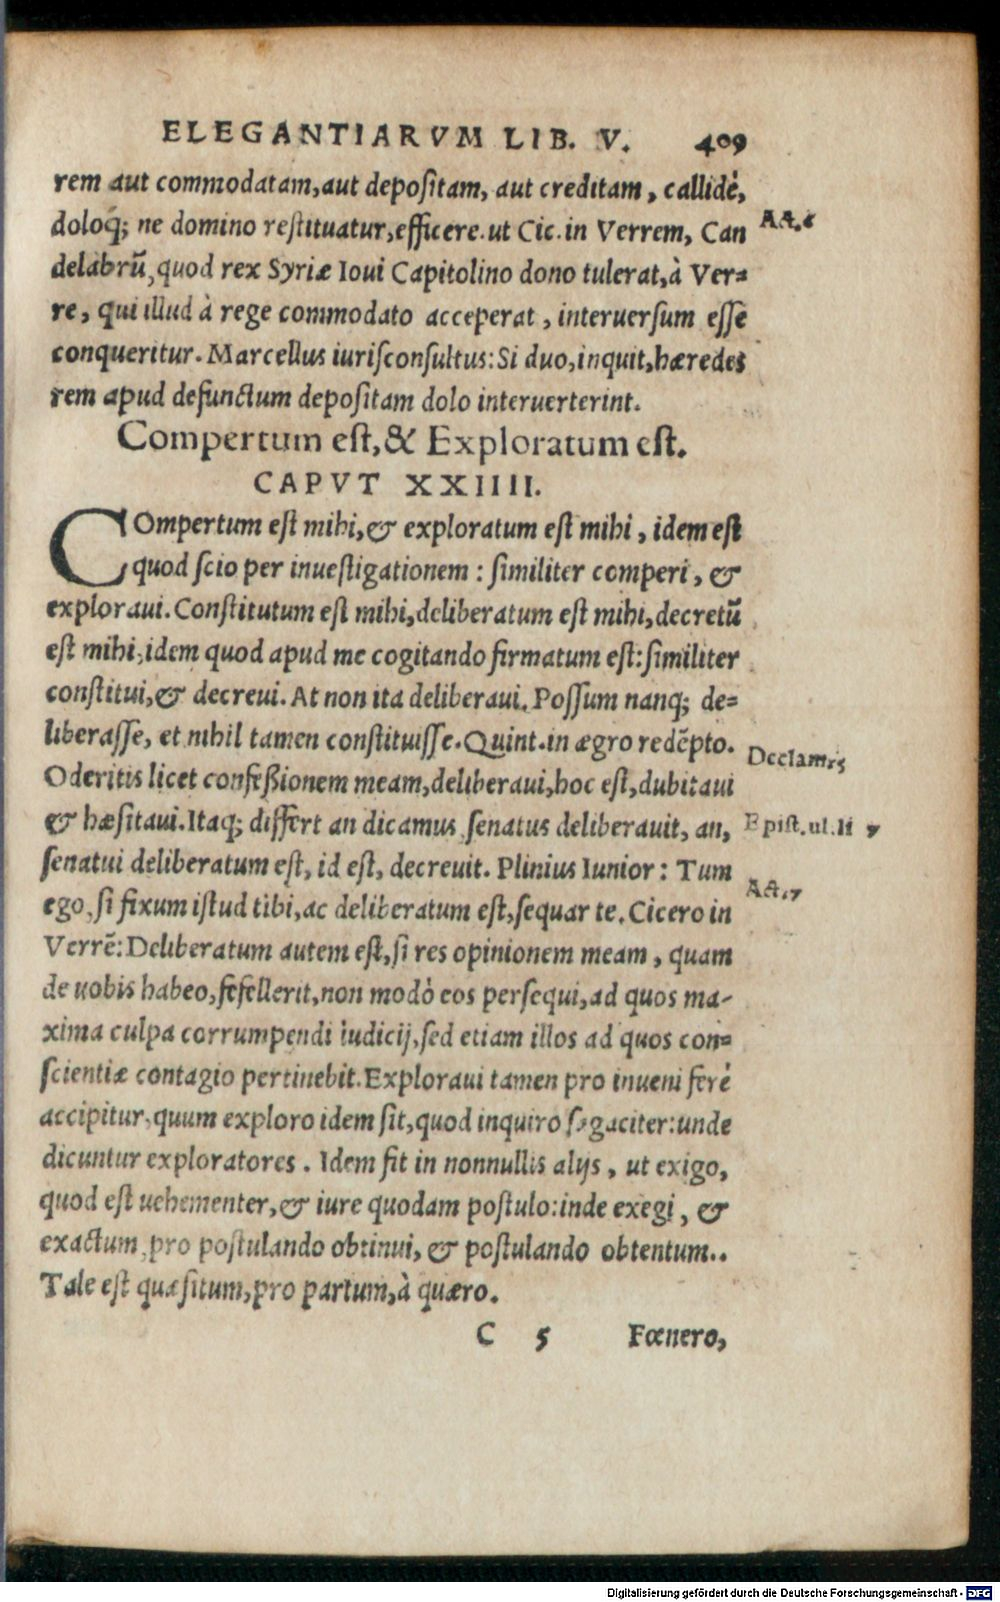 ELEGANTIARVM LIB. V. 409
rem aut commodatam, aut depositam, aut creditam, callidè,
doloq; ne domino restituatur, efficere. ut Cic. in Verrem, Can
Act. 6
delabrū, quod rex Syriæ Ioui Capitolino dono tulerat, à Ver=
re, qui illud à rege commodato acceperat, interuersum esse
conqueritur. Marcellus iurisconsultus: Si duo, inquit, hæredes
rem apud defunctum depositam dolo interuerterint.
Compertum est, & Exploratum est.
CAPVT XXIIII.
COmpertum est mihi, & exploratum est mihi, idem est
quod scio per inuestigationem: similiter comperi, &
exploraui. Constitutum est mihi, deliberatum est mihi, decretū
est mihi, idem quod apud me cogitando firmatum est: similiter
constitui, & decreui. At non ita deliberaui. Possum nanq; de=
liberasse, et nihil tamen constituisse. Quint. in ægro redēpto.
Declam
Oderitis licet confeßionem meam, deliberaui, hoc est, dubitaui
& hæsitaui. Itaq; differt an dicamus senatus deliberauit, an,
Epist. ul. li 7
senatui deliberatum est, id est, decreuit. Plinius Iunior: Tum
Act. 7
ego, si fixum istud tibi, ac deliberatum est, sequar te. Cicero in
Verrē: Deliberatum autem est, si res opinionem meam, quam
de uobis habeo, fefellerit, non modò eos persequi, ad quos ma-
xima culpa corrumpendi iudicij, sed etiam illos ad quos con=
scientiæ contagio pertinebit. Exploraui tamen pro inueni ferè
accipitur, quum exploro idem sit, quod inquiro sagaciter: unde
dicuntur exploratores. Idem fit in nonnullis alijs, ut exigo,
quod est uehementer, & iure quodam postulo: inde exegi, &
exactum, pro postulando obtinui, & postulando obtentum..
Tale est quæsitum, pro partum, à quæro.
C 5 Fœnero,
Digitalisierung gefördert durch die Deutsche Forschungsgemeinschaft - DFG